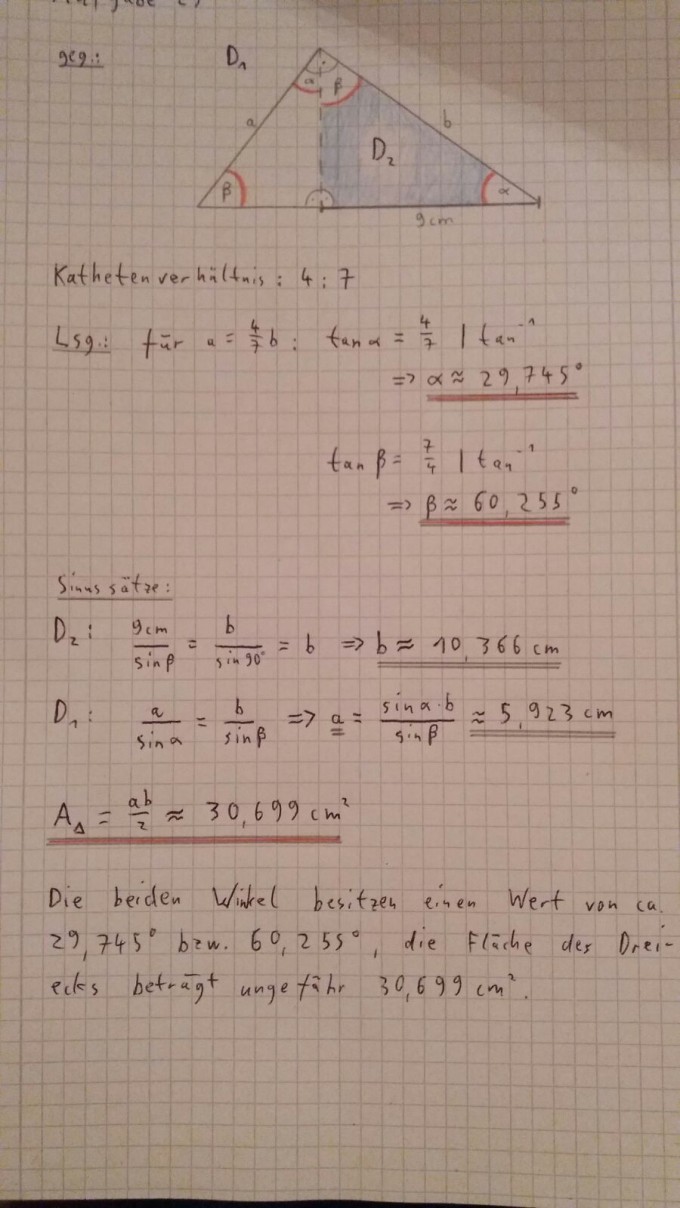 geg.: D₁
α β
a b
D₂
β α
9cm
Kathetenverhältnis: 4:7
Lsg.: für a = 4/7 b: tan α = 4/7 | tan⁻¹
=> α ≈ 29,745°
tan β = 7/4 | tan⁻¹
=> β ≈ 60,255°
Sinussätze:
D₂: 9cm/sin β = b/sin 90° = b => b ≈ 10,366 cm
D₁: a/sin α = b/sin β => a = sin α · b/sin β ≈ 5,923 cm
A_Δ = ab/2 ≈ 30,699 cm²
Die beiden Winkel besitzen einen Wert von ca.
29,745° bzw. 60,255°, die Fläche des Drei-
ecks beträgt ungefähr 30,699 cm².